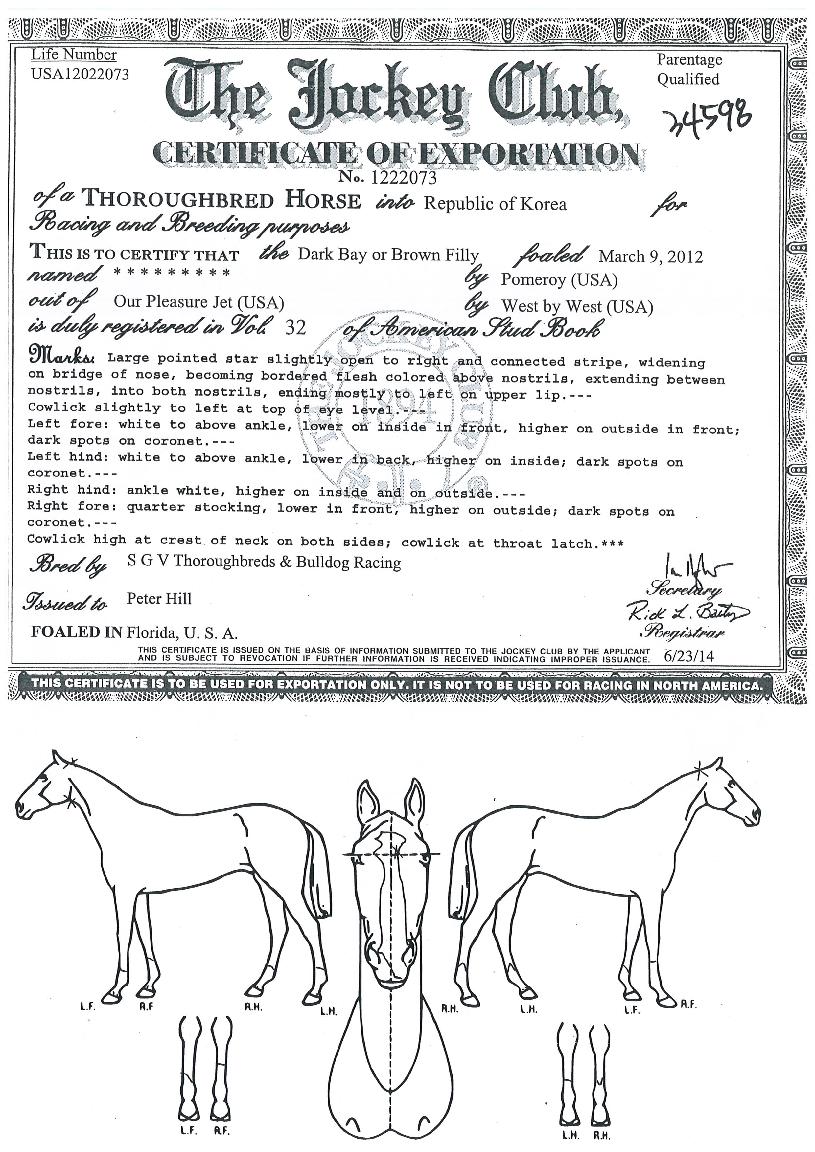 Life Number
USA12022073
Parentage
Qualified
34598
The Jockey Club,
CERTIFICATE OF EXPORTATION
No. 1222073
of a THOROUGHBRED HORSE into Republic of Korea for
Racing and Breeding purposes
THIS IS TO CERTIFY THAT the Dark Bay or Brown Filly foaled March 9, 2012
named * * * * * * * * * by Pomeroy (USA)
out of Our Pleasure Jet (USA) by West by West (USA)
is duly registered in Vol. 32 of American Stud Book
THE JOCKEY CLUB
1894
Marks: Large pointed star slightly open to right and connected stripe, widening
on bridge of nose, becoming bordered flesh colored above nostrils, extending between
nostrils, into both nostrils, ending mostly to left on upper lip.---
Cowlick slightly to left at top of eye level.---
Left fore: white to above ankle, lower on inside in front, higher on outside in front;
dark spots on coronet.---
Left hind: white to above ankle, lower in back, higher on inside; dark spots on
coronet.---
Right hind: ankle white, higher on inside and on outside.---
Right fore: quarter stocking, lower in front, higher on outside; dark spots on
coronet.---
Cowlick high at crest of neck on both sides; cowlick at throat latch.***
Bred by S G V Thoroughbreds & Bulldog Racing
Secretary
Issued to Peter Hill
Rick L. Bailey
Registrar
FOALED IN Florida, U. S. A.
THIS CERTIFICATE IS ISSUED ON THE BASIS OF INFORMATION SUBMITTED TO THE JOCKEY CLUB BY THE APPLICANT
AND IS SUBJECT TO REVOCATION IF FURTHER INFORMATION IS RECEIVED INDICATING IMPROPER ISSUANCE. 6/23/14
THIS CERTIFICATE IS TO BE USED FOR EXPORTATION ONLY. IT IS NOT TO BE USED FOR RACING IN NORTH AMERICA.
L.F. R.F R.H. L.H. R.H. L.H. L.F. R.F.
L.F. R.F. L.H. R.H.